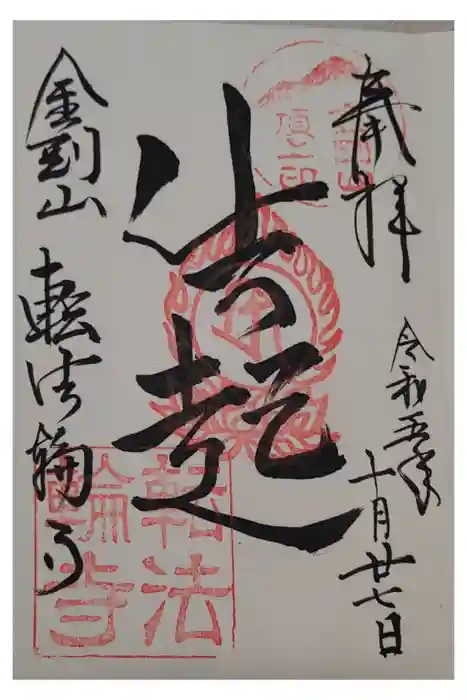 奉拝
令和五年
十月廿七日
法起
金剛山 転法輪寺
転法
輪寺